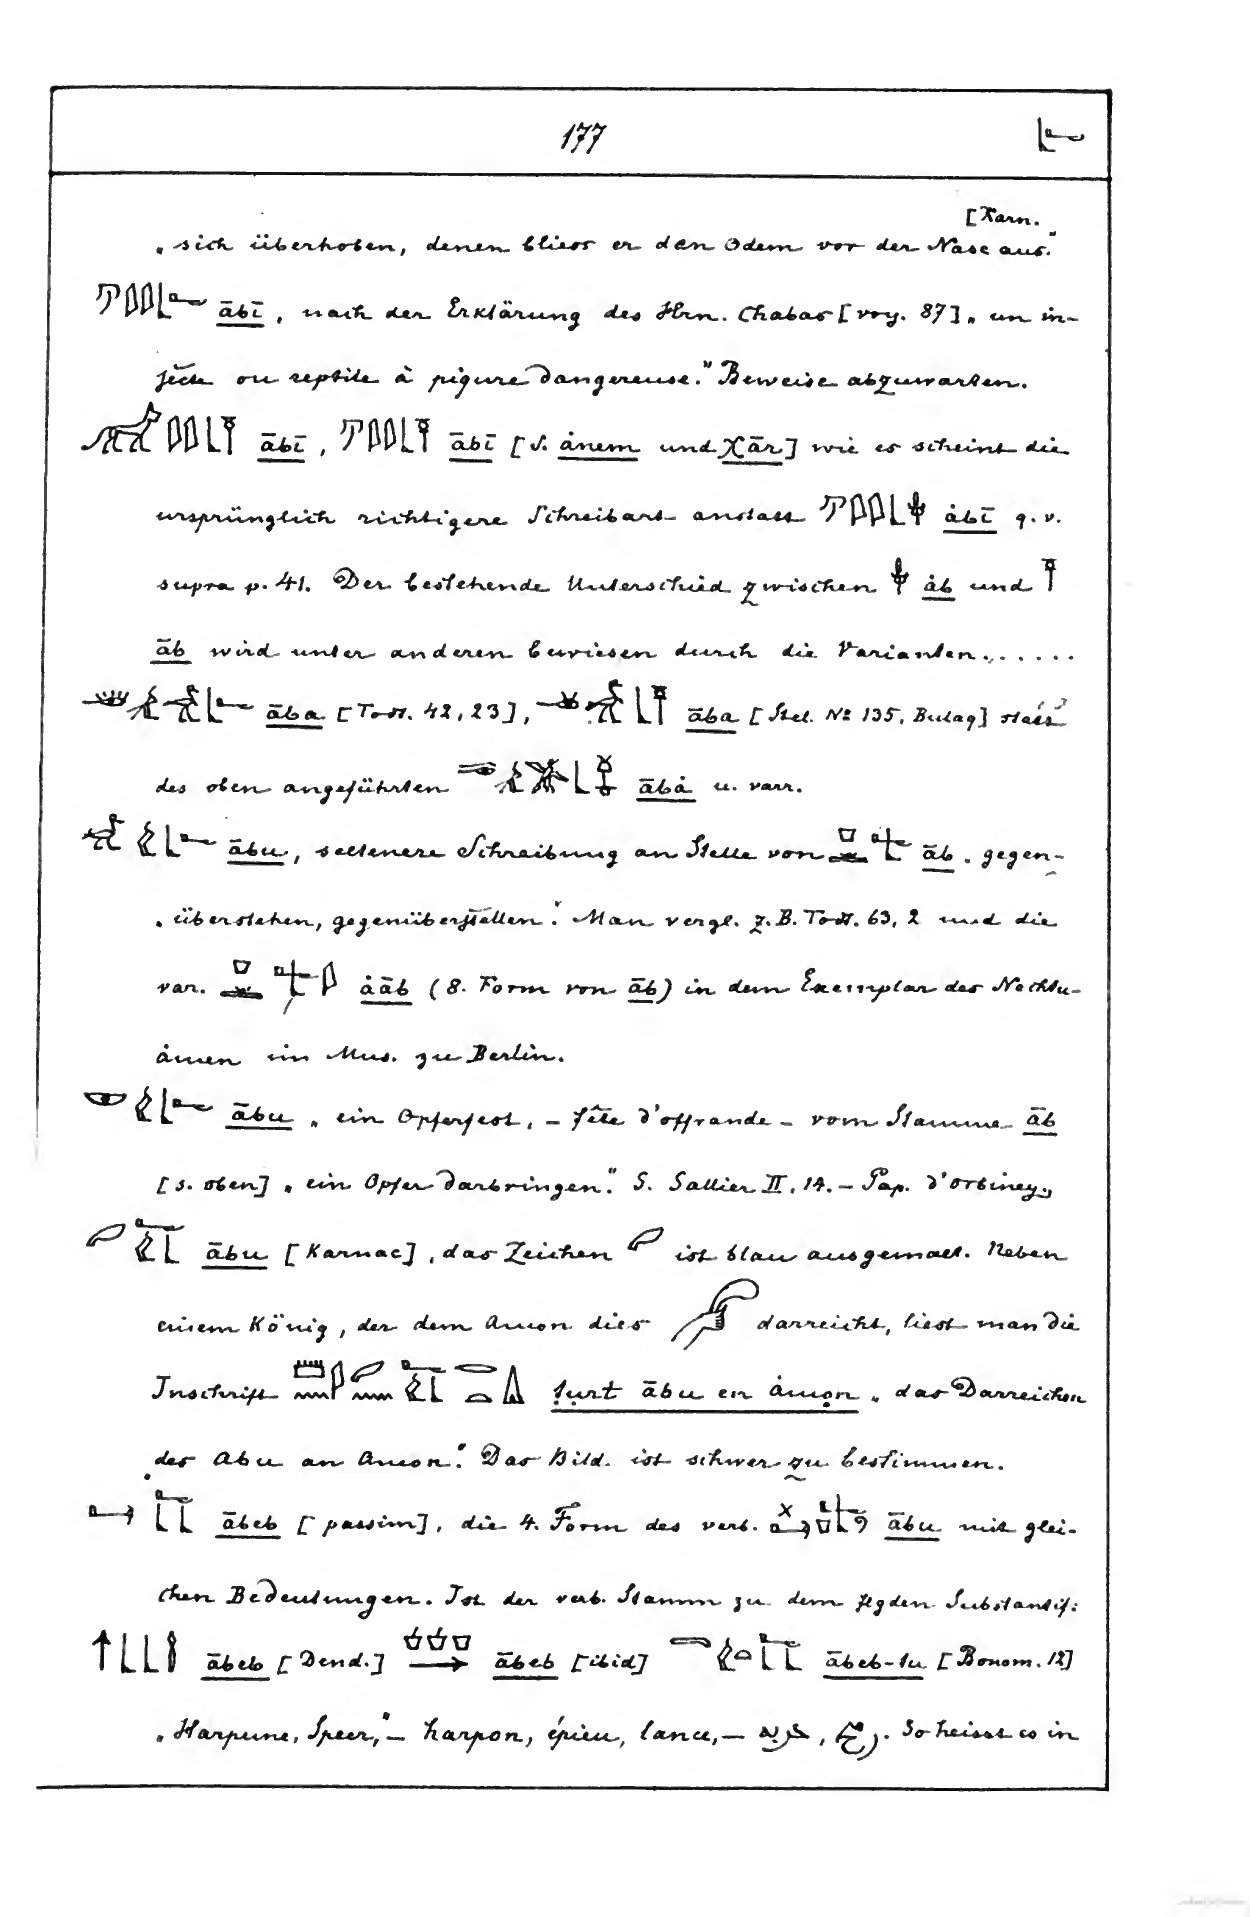 177
[Karn.
„sich überhoben, denen blies er den Odem vor der Nase aus."
ābī, nach der Erklärung des Hrn. Chabas [voy. 87] „un in-
secte ou reptile à piqure dangereuse." Beweise abzuwarten.
ābī, ābī [s. ȧnem und χār] wie es scheint die
ursprünglich richtigere Schreibart anstatt ȧbī q. v.
supra p. 41. Der bestehende Unterschied zwischen ȧb und
āb wird unter anderen bewiesen durch die Varianten......
āba [Todt. 42, 23], āba [Stel. № 135, Bulaq] statt
des oben angeführten ābȧ u. varr.
ābu, seltenere Schreibung an Stelle von āb „gegen-
„überstehen, gegenüberstellen." Man vergl. z. B. Todt. 63, 2 und die
var. ȧāb (8. Form von āb) in dem Exemplar des Nechtu-
ȧmen im Mus. zu Berlin.
ābu „ein Opferfest, – fête d'offrande – vom Stamme āb
[s. oben] „ein Opfer darbringen." S. Sallier II, 14. – Pap. d'Orbiney,
ābu [Karnac], das Zeichen ist blau ausgemalt. Neben
einem König, der dem Amon dies darreicht, liest man die
Inschrift ābu en ȧmon „das Darreichen
des Abu an Amon." Das Bild ist schwer zu bestimmen.
ābeb [passim], die 4. Form des verb. ābu mit glei-
chen Bedeutungen. Ist der verb. Stamm zu dem flgden Substantif:
ābeb [Dend.] ābeb [ibid] ābeb-tu [Bonom. 12]
„Harpune, Speer," – harpon, épieu, lance, – حربة, رمح. So heisst es in